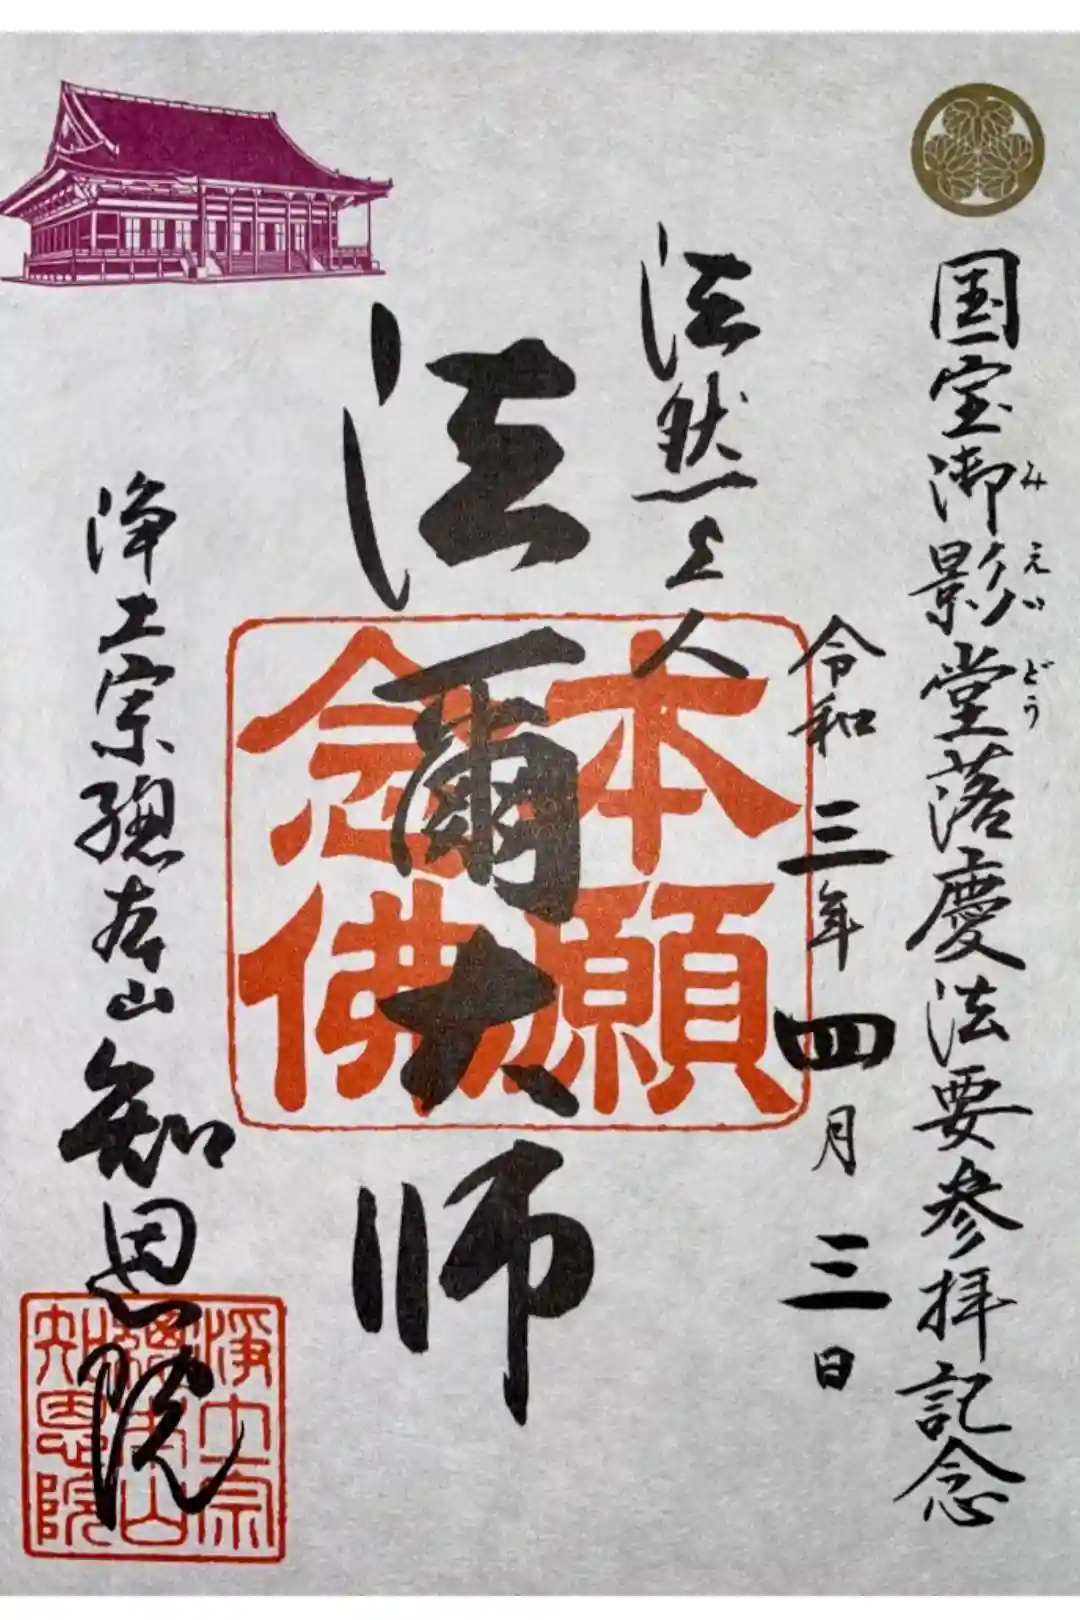 国宝御影堂落慶法要参拝記念
みえいどう
令和三年四月三日
法然上人
法爾大師
本願
念佛
浄土宗總本山知恩院
淨土宗
總本山
知恩院